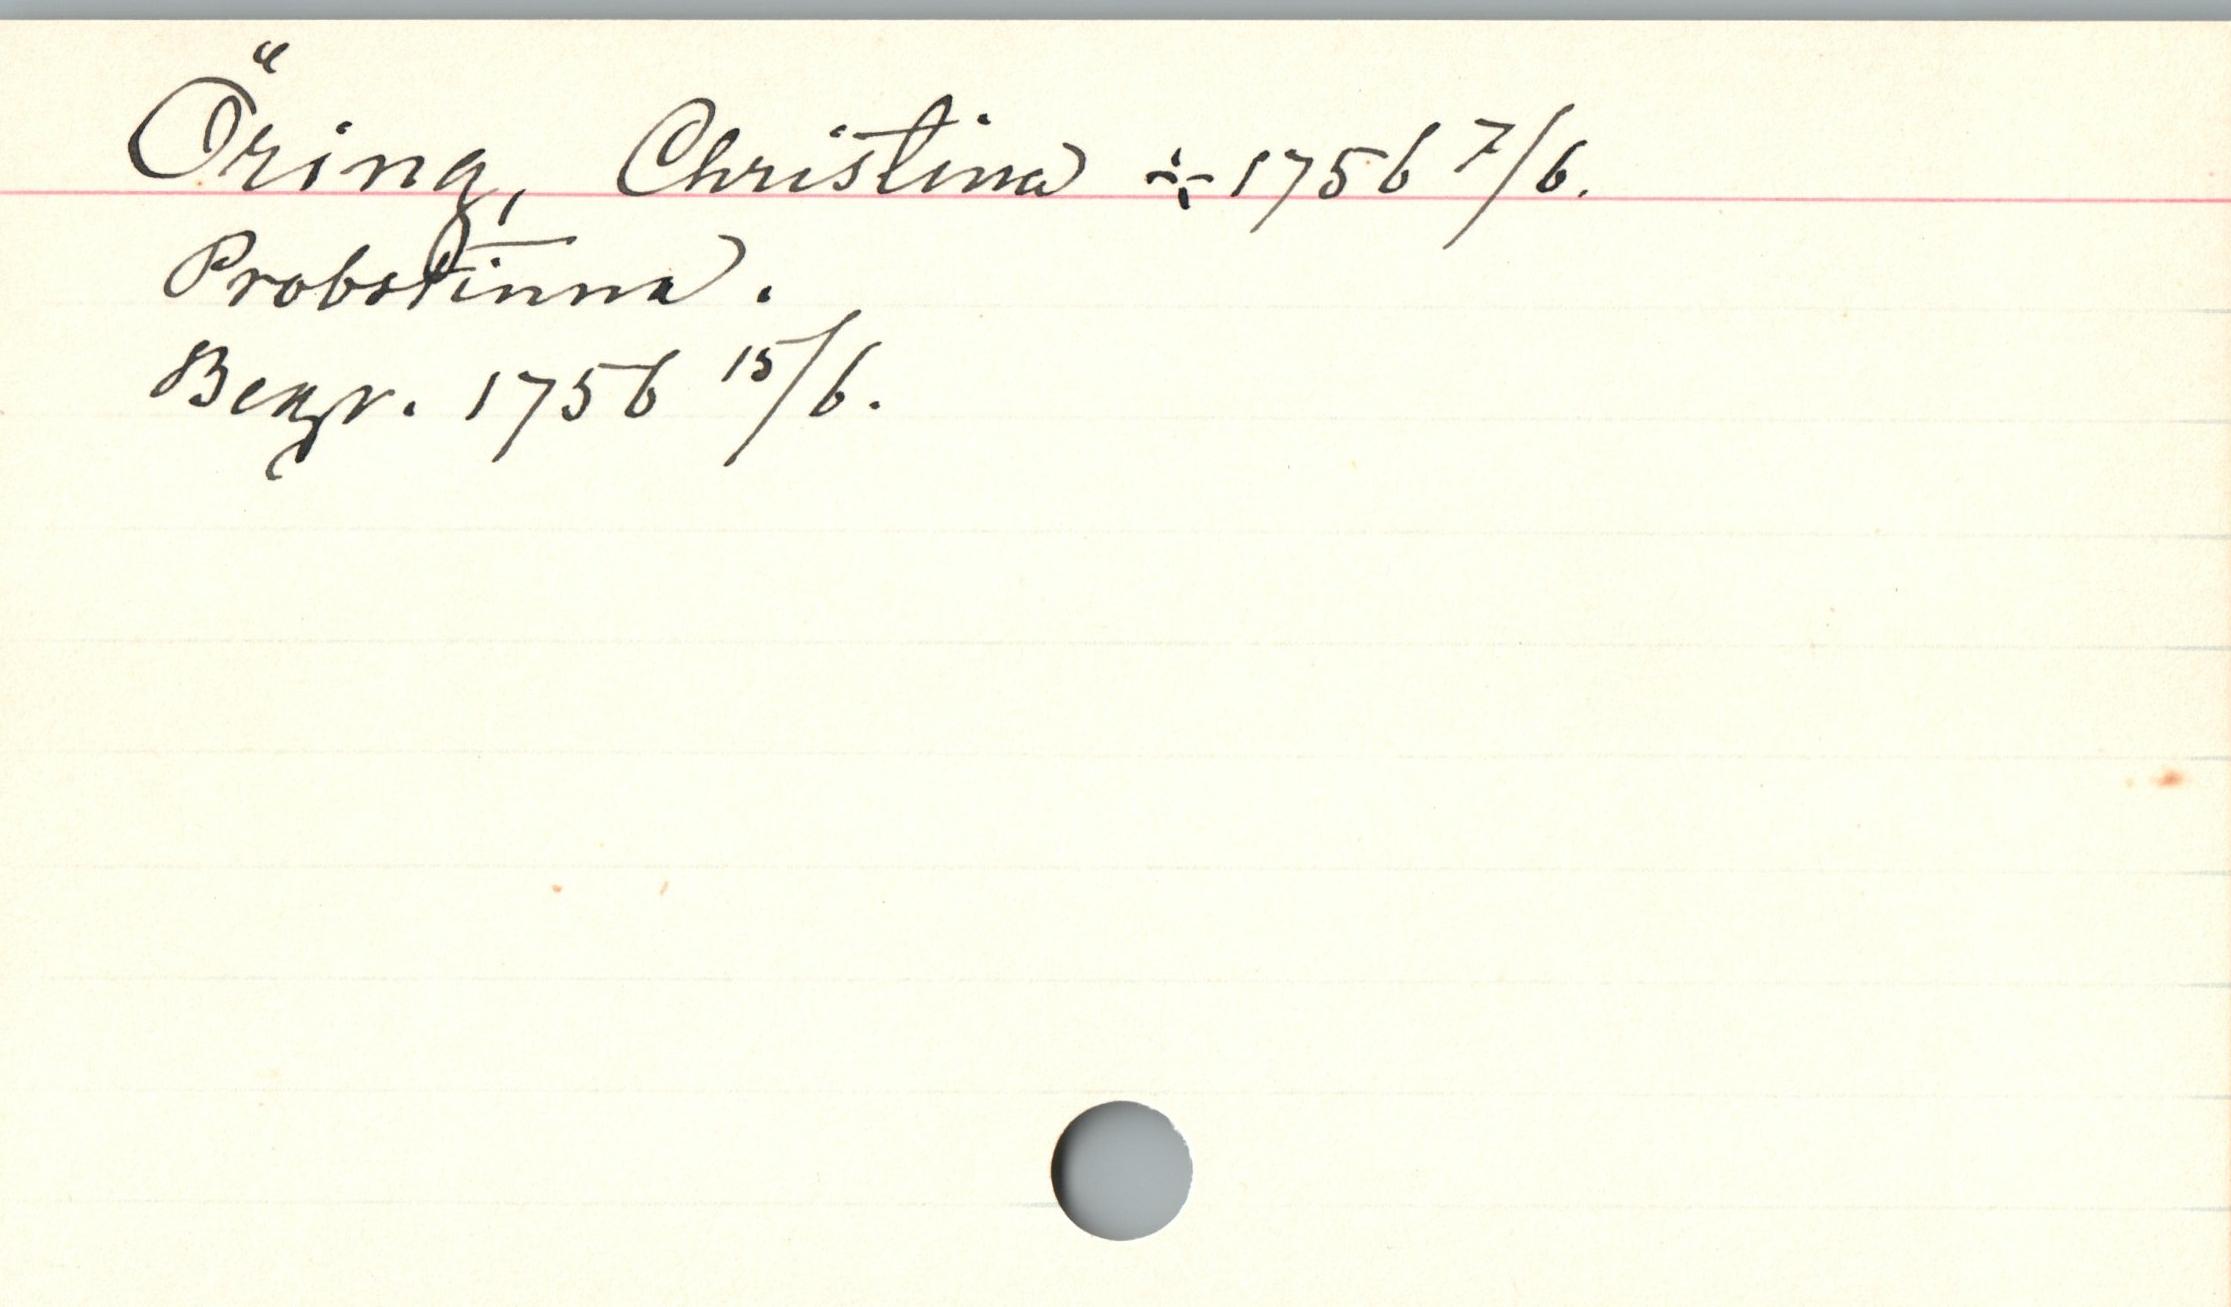 Öring, Christina ÷ 1756 7/6.
Probstinna.
Begr. 1756 15/6.